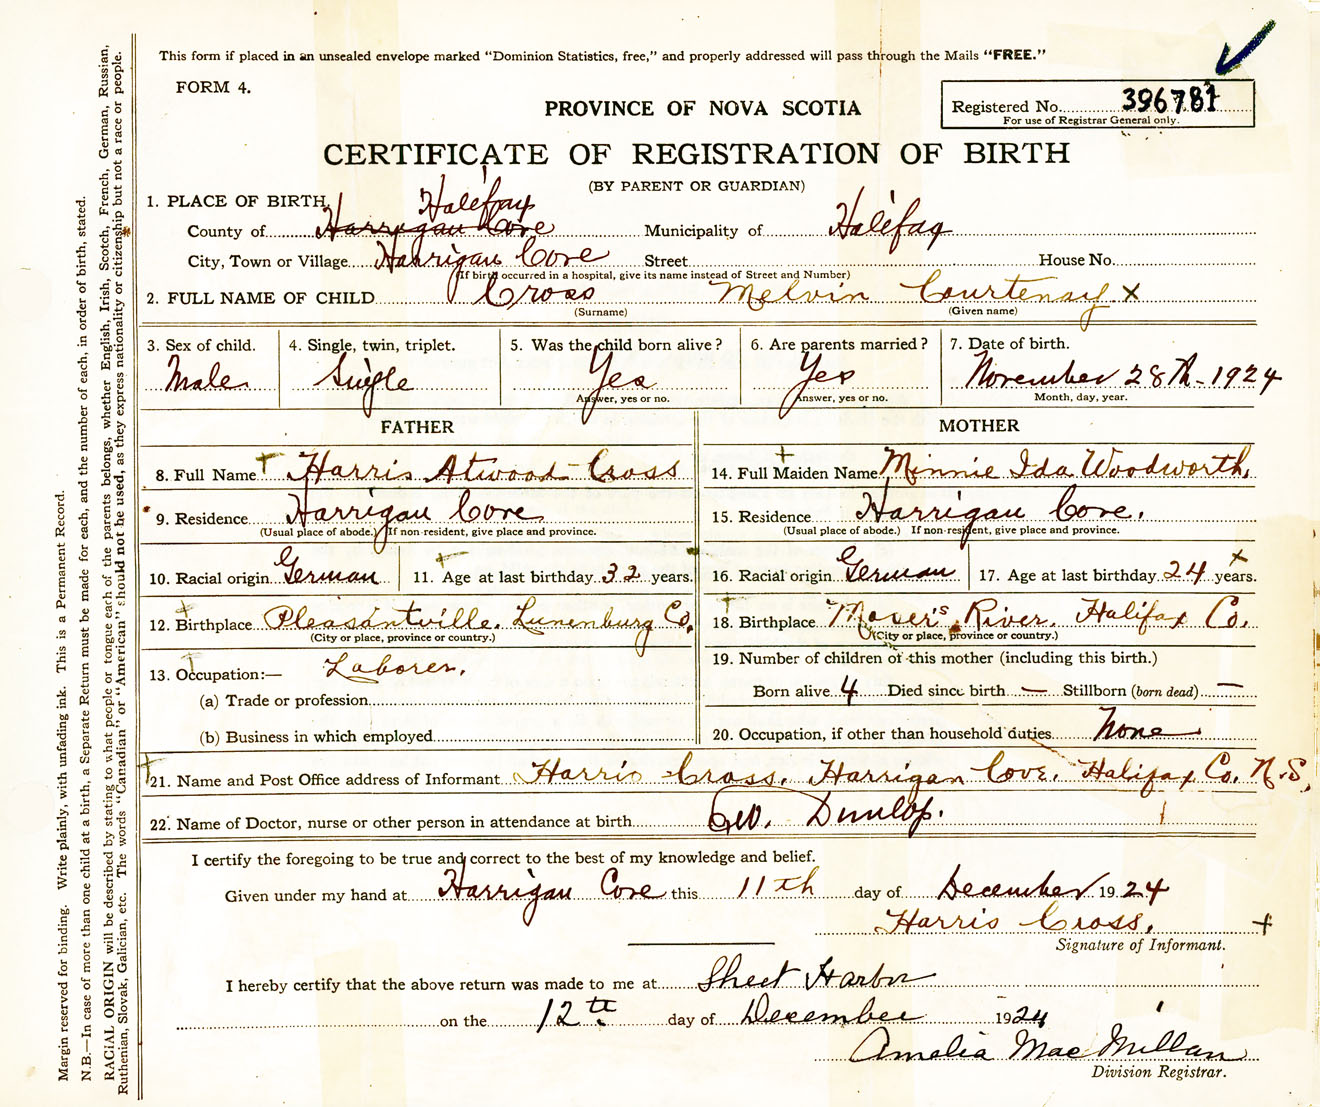 This form if placed in an unsealed envelope marked “Dominion Statistics, free,” and properly addressed will pass through the Mails “FREE.”
FORM 4.
PROVINCE OF NOVA SCOTIA
Registered No. 396781
For use of Registrar General only.
CERTIFICATE OF REGISTRATION OF BIRTH
(BY PARENT OR GUARDIAN)
1. PLACE OF BIRTH, Halifax
County of Harrigan Cove Municipality of Halifax
City, Town or Village Harrigan Cove Street House No.
(If birth occurred in a hospital, give its name instead of Street and Number)
2. FULL NAME OF CHILD Cross Melvin Courtenay x
(Surname) (Given name)
3. Sex of child. 4. Single, twin, triplet. 5. Was the child born alive? 6. Are parents married? 7. Date of birth.
Male Single Yes Yes November 28th - 1924
Answer, yes or no. Answer, yes or no. Month, day, year.
FATHER
8. Full Name Harris Atwood Cross
9. Residence Harrigan Cove
(Usual place of abode.) If non-resident, give place and province.
10. Racial origin German 11. Age at last birthday 32 years.
12. Birthplace Pleasantville, Lunenburg Co,
(City or place, province or country.)
13. Occupation:— Laborer.
(a) Trade or profession
(b) Business in which employed
MOTHER
14. Full Maiden Name Minnie Ida Woodworth,
15. Residence Harrigan Cove.
(Usual place of abode.) If non-resident, give place and province.
16. Racial origin German 17. Age at last birthday 24 years.
18. Birthplace Moser's River, Halifax Co.
(City or place, province or country.)
19. Number of children of this mother (including this birth.)
Born alive 4 Died since birth — Stillborn (born dead) —
20. Occupation, if other than household duties None
21. Name and Post Office address of Informant Harris Cross, Harrigan Cove, Halifax Co. N.S,
22. Name of Doctor, nurse or other person in attendance at birth Geo. Dunlop.
I certify the foregoing to be true and correct to the best of my knowledge and belief.
Given under my hand at Harrigan Cove this 11th day of December 1924
Harris Cross,
Signature of Informant.
I hereby certify that the above return was made to me at Sheet Harbor
on the 12th day of December 1924
Amelia MacMillan
Division Registrar.
Margin reserved for binding. Write plainly, with unfading ink. This is a Permanent Record.
N.B.—In case of more than one child at a birth, a Separate Return must be made for each, and the number of each, in order of birth, stated.
RACIAL ORIGIN will be described by stating to what people or tongue each of the parents belongs, whether English, Irish, Scotch, French, German, Russian,
Ruthenian, Slovak, Galician, etc. The words “Canadian” or “American” should not be used, as they express nationality or citizenship but not a race or people.